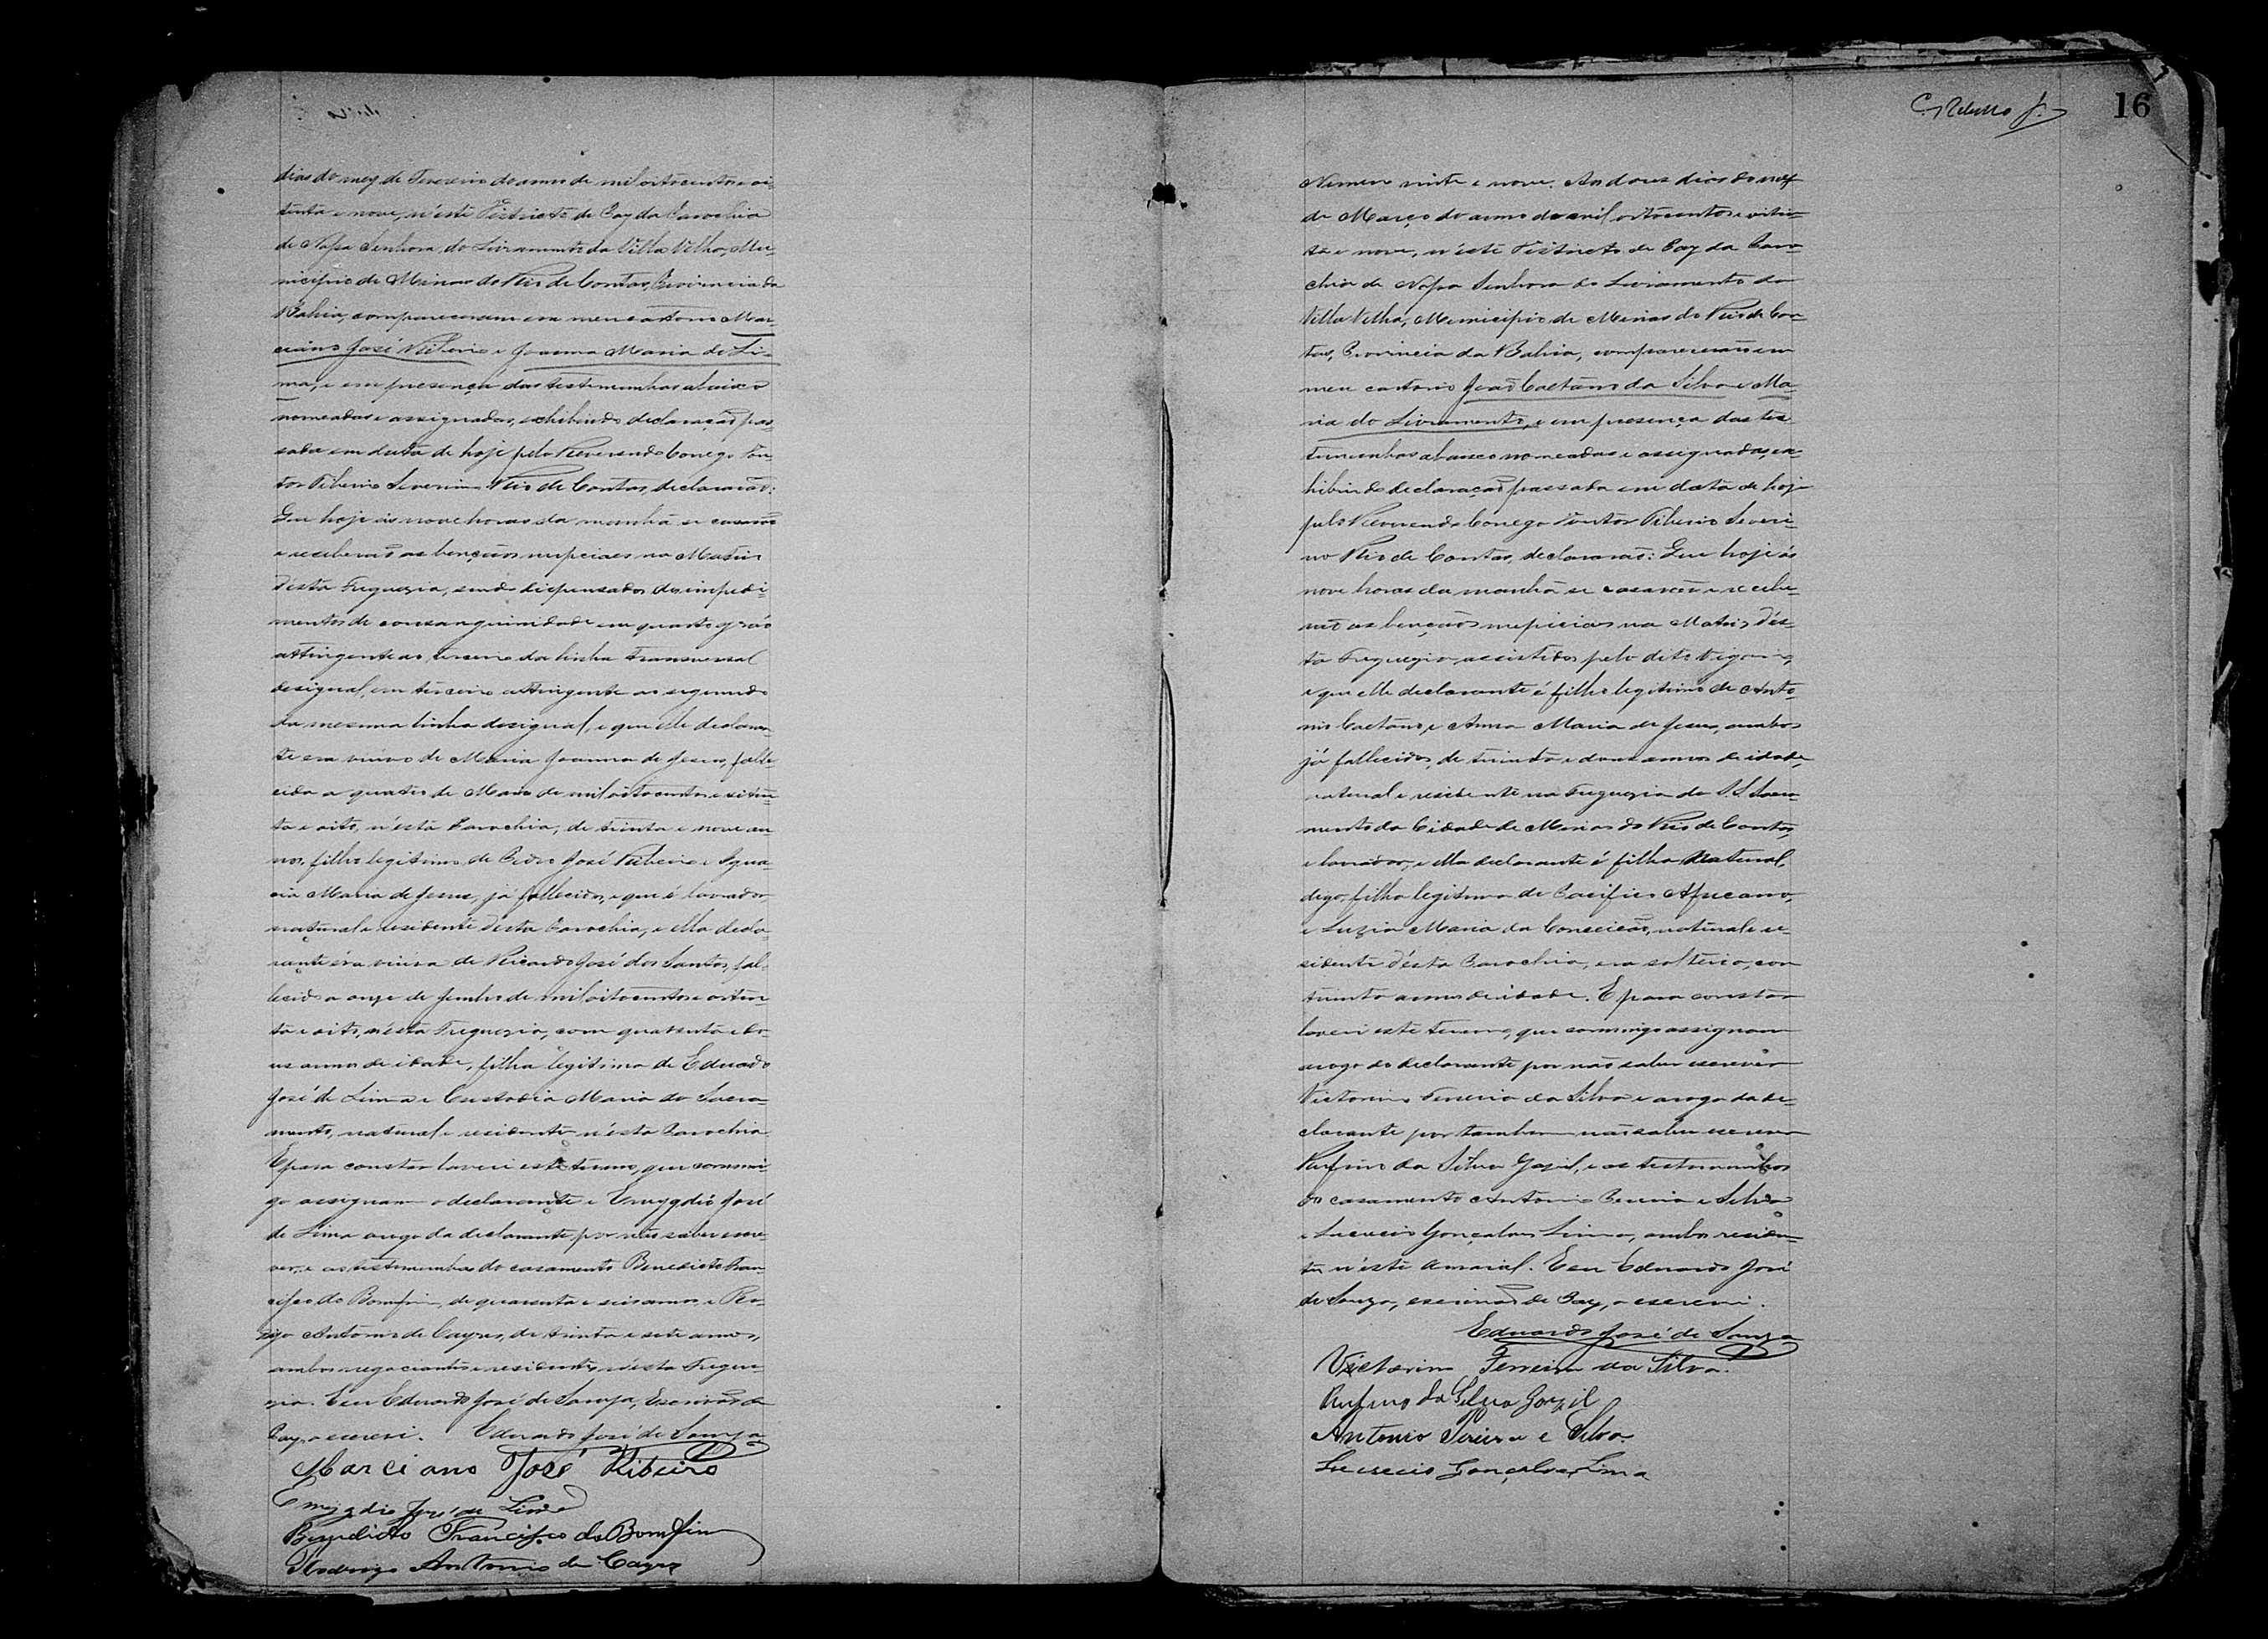 dias do mez de Fevereiro do anno de mil oitocentos e oi-
tenta e nove, n'este Districto de Paz da Parochia
de Nossa Senhora do Livramento da Villa Velha, Mu-
nicipio de Minas do Rio de Contas, Provincia da
Bahia, compareceram em meu cartorio Mar-
ciano José Ribeiro e Joanna Maria de Li-
ma, e em presença das testemunhas abaixo
nomeadas e assignadas, exhibindo declaração pas-
sada em data de hoje pelo Reverendo Conego Dou-
tor Tiberio Severino Rio de Contas, declararão:
Que hoje ás nove horas da manhã se casarão
e receberão as bençãos nupciaes na Matriz
desta Freguezia, sendo dispensados do impedi-
mentos de consanguinidade em quarto gráo
attingente ao terceiro da linha transversal
desigual, em terceiro attingente ao segundo
da mesma linha desigual, e que elle declaran-
te era viuvo de Maria Joanna de Jesus, falle-
cida a quatro de Maio de mil oitocentos e setten-
ta e oito, n'esta Parochia, de trinta e nove an-
nos, filho legitimo de Pedro José Ribeiro e Igna-
cia Maria de Jesus, já fallecidos, e que é lavrador
natural e residente desta Parochia, e ella decla-
rante éra viuva de Ricardo José dos Santos, fal-
lecido a onze de Junho de mil oitocentos e oiten-
ta e oito, n'esta Freguezia, com quarenta e do-
us annos de idade, filha legitima de Eduardo
José de Lima e Custodia Maria do Sacra-
mento, natural e residente n'esta Parochia.
E para constar lavrei este termo, que commi-
go assignam o declarante e Emygdio José
de Lima a rogo da declarante por não saber escre-
ver, e as testemunhas do casamento Benedicto Fran-
cisco do Bomfim, de quarenta e seis annos, e Ro-
drigo Antonio de Cayres, de trinta e sete annos,
ambos negociantes e residentes n'esta Fregue-
zia. Eu Eduardo José de Souza, Escrivão de
Paz, o escrevi. Eduardo José de Souza
Marciano José Ribeiro
Emigdio José de Lima
Benedicto Francisco do Bomfim
Rodrigo Antonio de Cayres
16
Numero vinte e nove. Aos dous dias do mez
de Março do anno de mil oitocentos e oiten-
ta e nove, n'este Districto de Paz da Paro-
chia de Nossa Senhora do Livramento da
Villa Velha, Municipio de Minas do Rio de Con-
tas, Provincia da Bahia, comparecerão em
meu cartorio João Caetano da Silva e Ma-
ria do Livramento, e em presença das tes-
temunhas abaixo nomeadas e assignadas, ex-
hibindo declaração passada em data de hoje
pelo Reverendo Conego Doutor Tiberio Severi-
no Rio de Contas, declararão: Que hoje ás
nove horas da manhã se casarão e recebe-
rão as bençãos nupciaes na Matriz d'es-
ta Freguezia, assistidos pelo dito Vigario,
e que elle declarante é filho legitimo de Anto-
nio Caetano e Anna Maria de Jesus, ambos
já fallecidos, de trinta e dous annos de idade,
natural e residente na Freguezia do S.S. Sacra-
mento da Cidade de Minas do Rio de Contas,
e lavrador, e ella declarante é filha natural,
digo, filha legitima de Pacifico Africano,
e Luzia Maria da Conceição, natural e re-
sidente d'esta Parochia, era solteira, com
trinta annos de idade. E para constar
lavrei este termo, que commigo assignam
a rogo do declarante por não saber escrever
Victorino Ferreira da Silva e a rogo da de-
clarante por tambem não saber escrever
Rufino da Silva Gozil, e as testemunhas
do casamento Antonio Pereira e Silva
e Lucrecio Gonçalves Lima, ambos residen-
tes n'este Arraial. Eu Eduardo José
de Souza, escrivão de Paz, o escrevi.
Eduardo José de Souza
Victorino Ferreira da Silva.
Rufino da Silva Gozil
Antonio Pereira e Silva
Lucrecio Gonçalves Lima